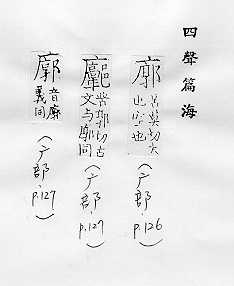 四聲篇海
廓 苦莫切大
也空也 (广部, p.126)
苦郭切古
文与廓同 (广部, p.127)
音廓
義同 (广部, p.127)